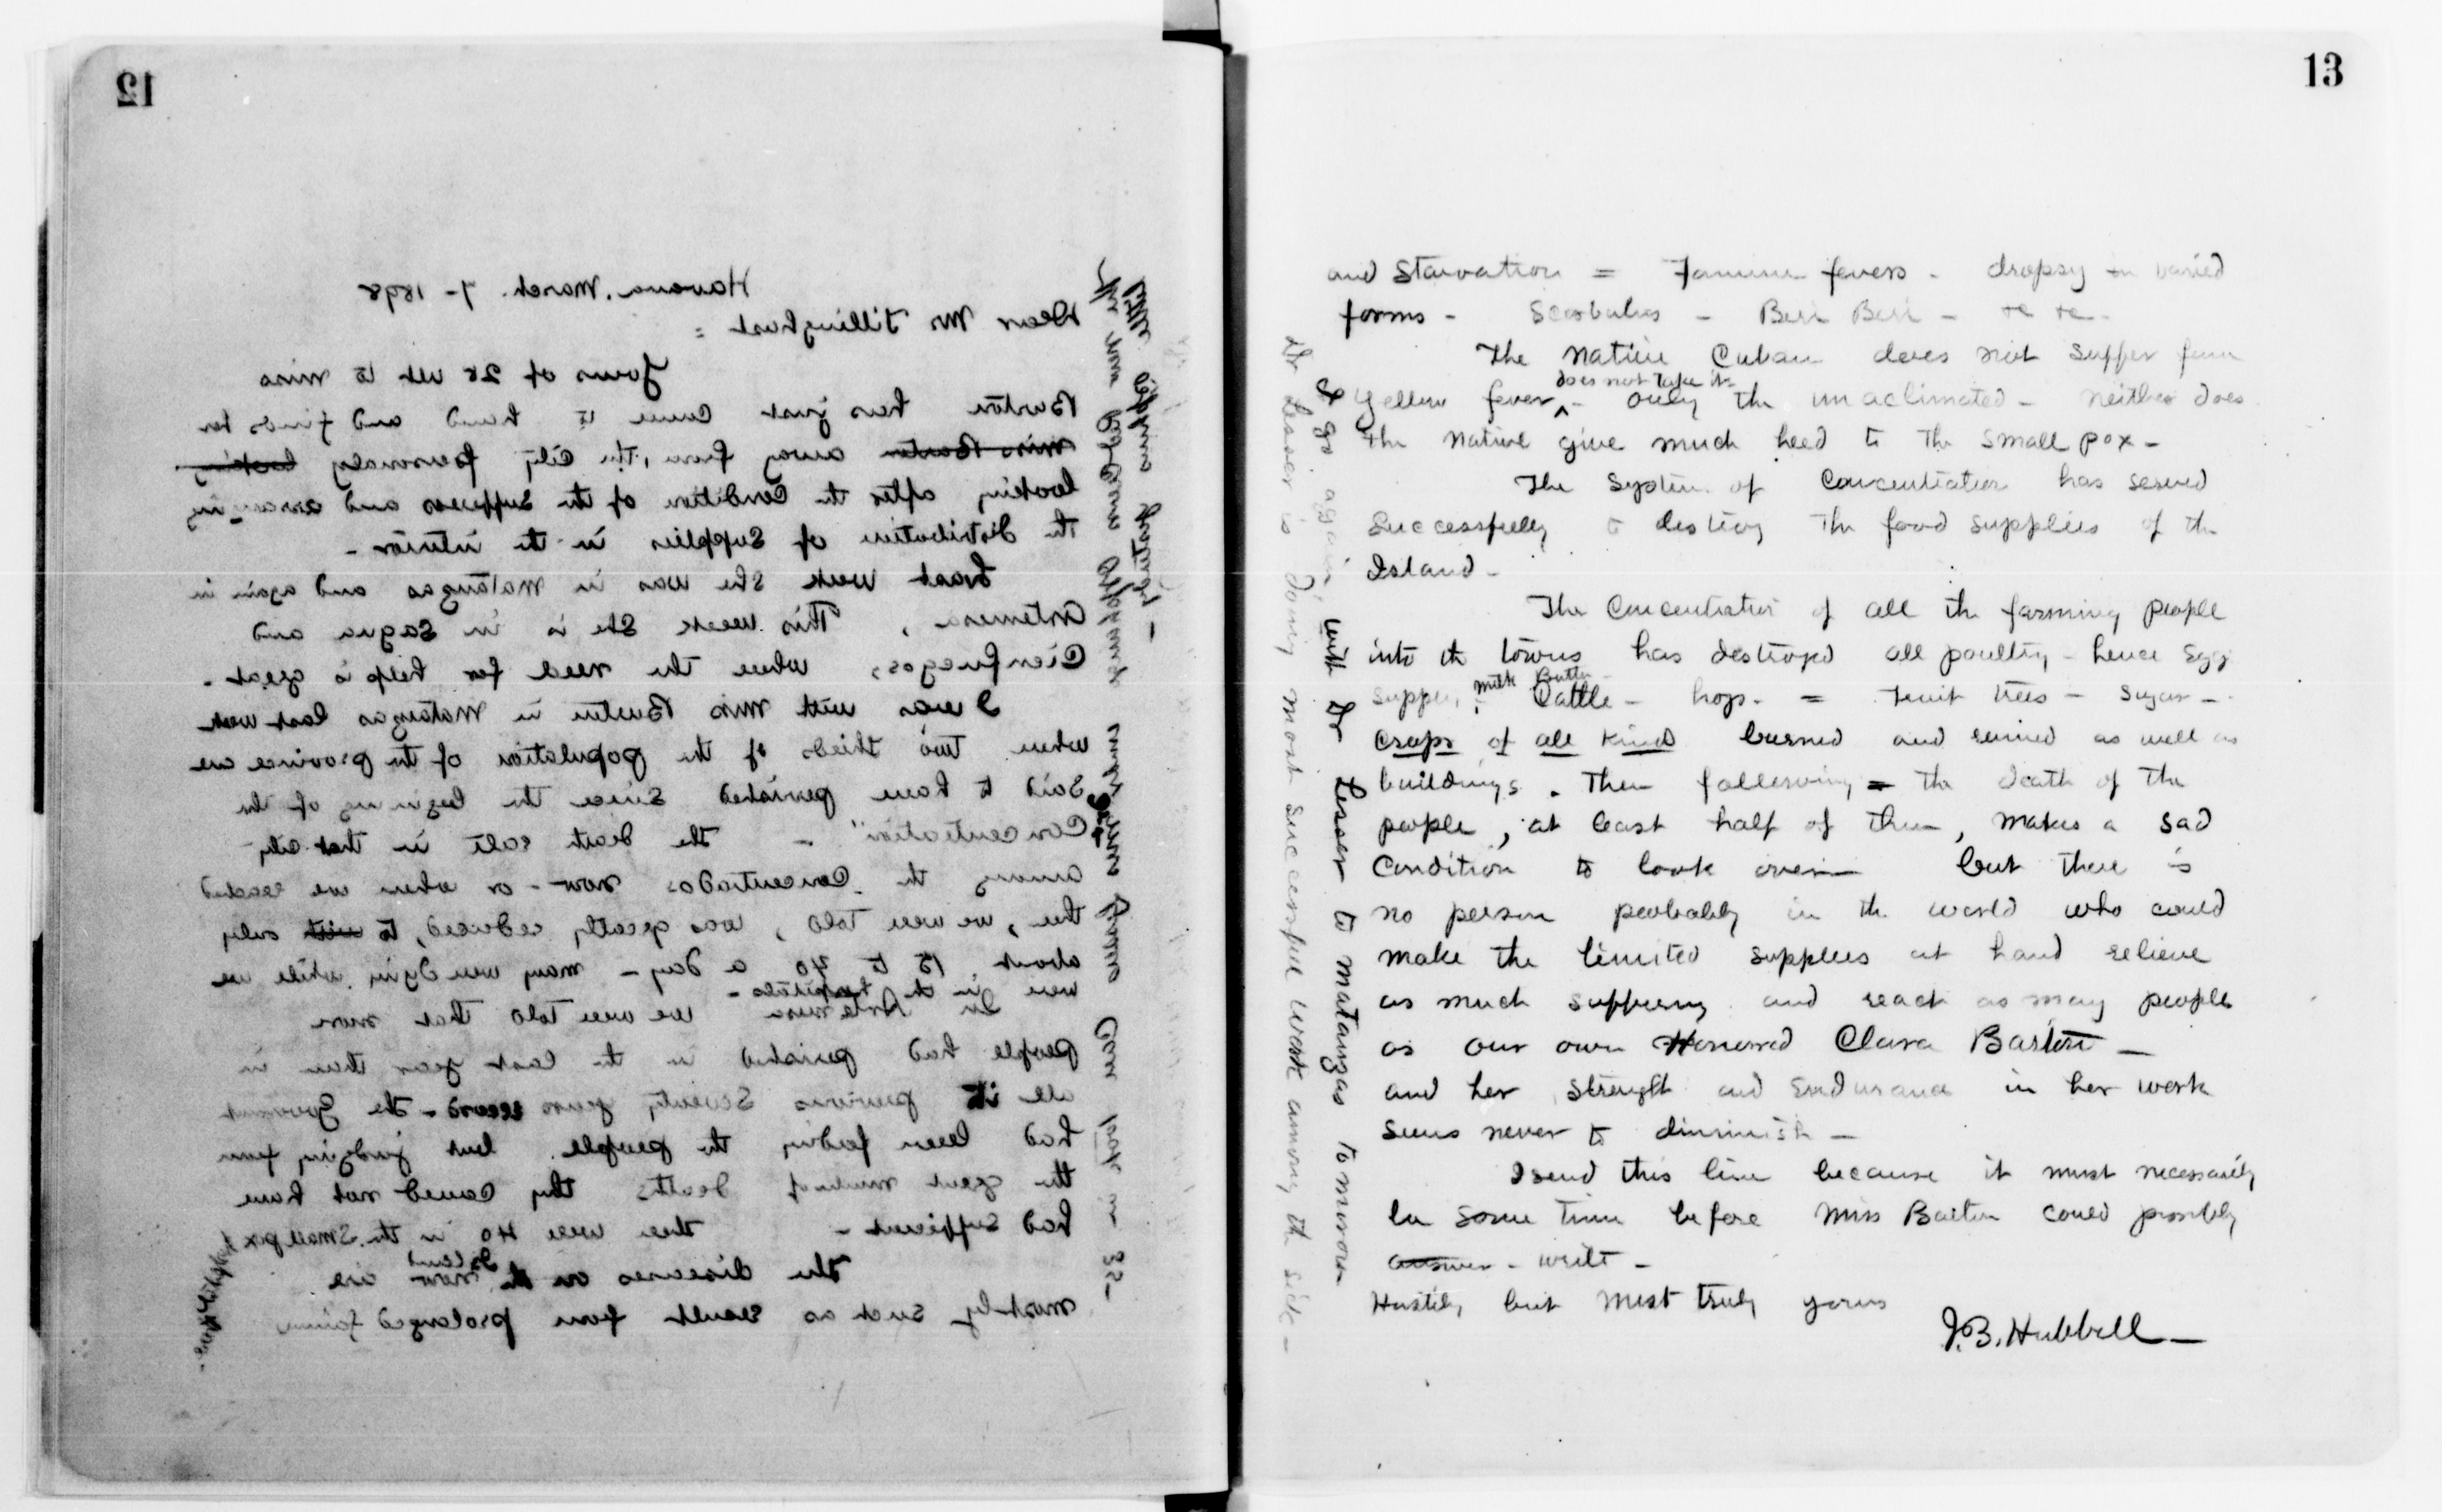 12
Havana. March. 7 - 1898
Dear Mr Tillinghast =
Yours of 28 ult to Miss
Barton has just come to hand and finds her
Miss Barton away from the city personally looking
looking after the condition of the suffererss and arranging
the distribution of supplies in the interior -
Last week she was in Matanzas and again in
Artemesa, This week she is in Sagua and
Cienfuegos, where the need for help is great.
I was with Miss Barton in Matanzas last week
where two thirds of the population of the province are
said to have perished since the begining of the
"Concentration" - the death rate in that city
among the Concentrados now - or when we reached
there, we were told, was greatly reduced, to with only
about 15 to 40 a day - many were dying while we
were in the hospitals -
In Artemesa we were told that more
people had perished in the last year than in
all its previous seventy years record - the Goverment
had been feeding the people. but judging from
the great number of deaths they could not have
had sufficient - there were 40 in the Small pox
hospital there -
The diseases on the Island now are
mostly such as result from prolonged famine
We have Red Cross Orphange under Mrs Can take in 25 -
little orphans
13
and Starvation = Famine fevers - dropsy in varied
forms - Scorbutus - Beri Beri - &c &c -
The native Cuban does not suffer from
yellow fever, does not take it - only the unaclimated - neither does
the native give much heed to the small pox -
The System of Concentration has served
Successfully to destroy the food supplies of the
Island -
The Concentration of all the farming people
into the towns has destroyed all poultry - hence egg
supply, milk Butter - Cattle - hogs - = fruit trees - sugar -
crops of all kinds burned and ruined as well as
buildings. Then following = the death of the
people, at least half of them, makes a sad
condition to look over - but there is
no person probably in the world who could
make the limited supplies at hand relieve
as much suffering and reach as many people
as our own Honored Clara Barton -
and her strength and Endurance in her work
seems never to diminish -
I send this line because it must necessarily
be some time before Miss Barton could possibly
answer - write -
Hastily but most truly yours
J.B. Hubbell -
I go again, with Dr Lesser to Matanzas tomorrow
Dr Lesser is doing most successful work among the sick -